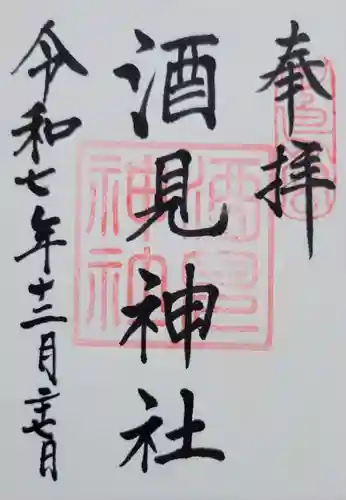 奉拝
酒見神社
令和七年十二月二十七日
酒見
神社